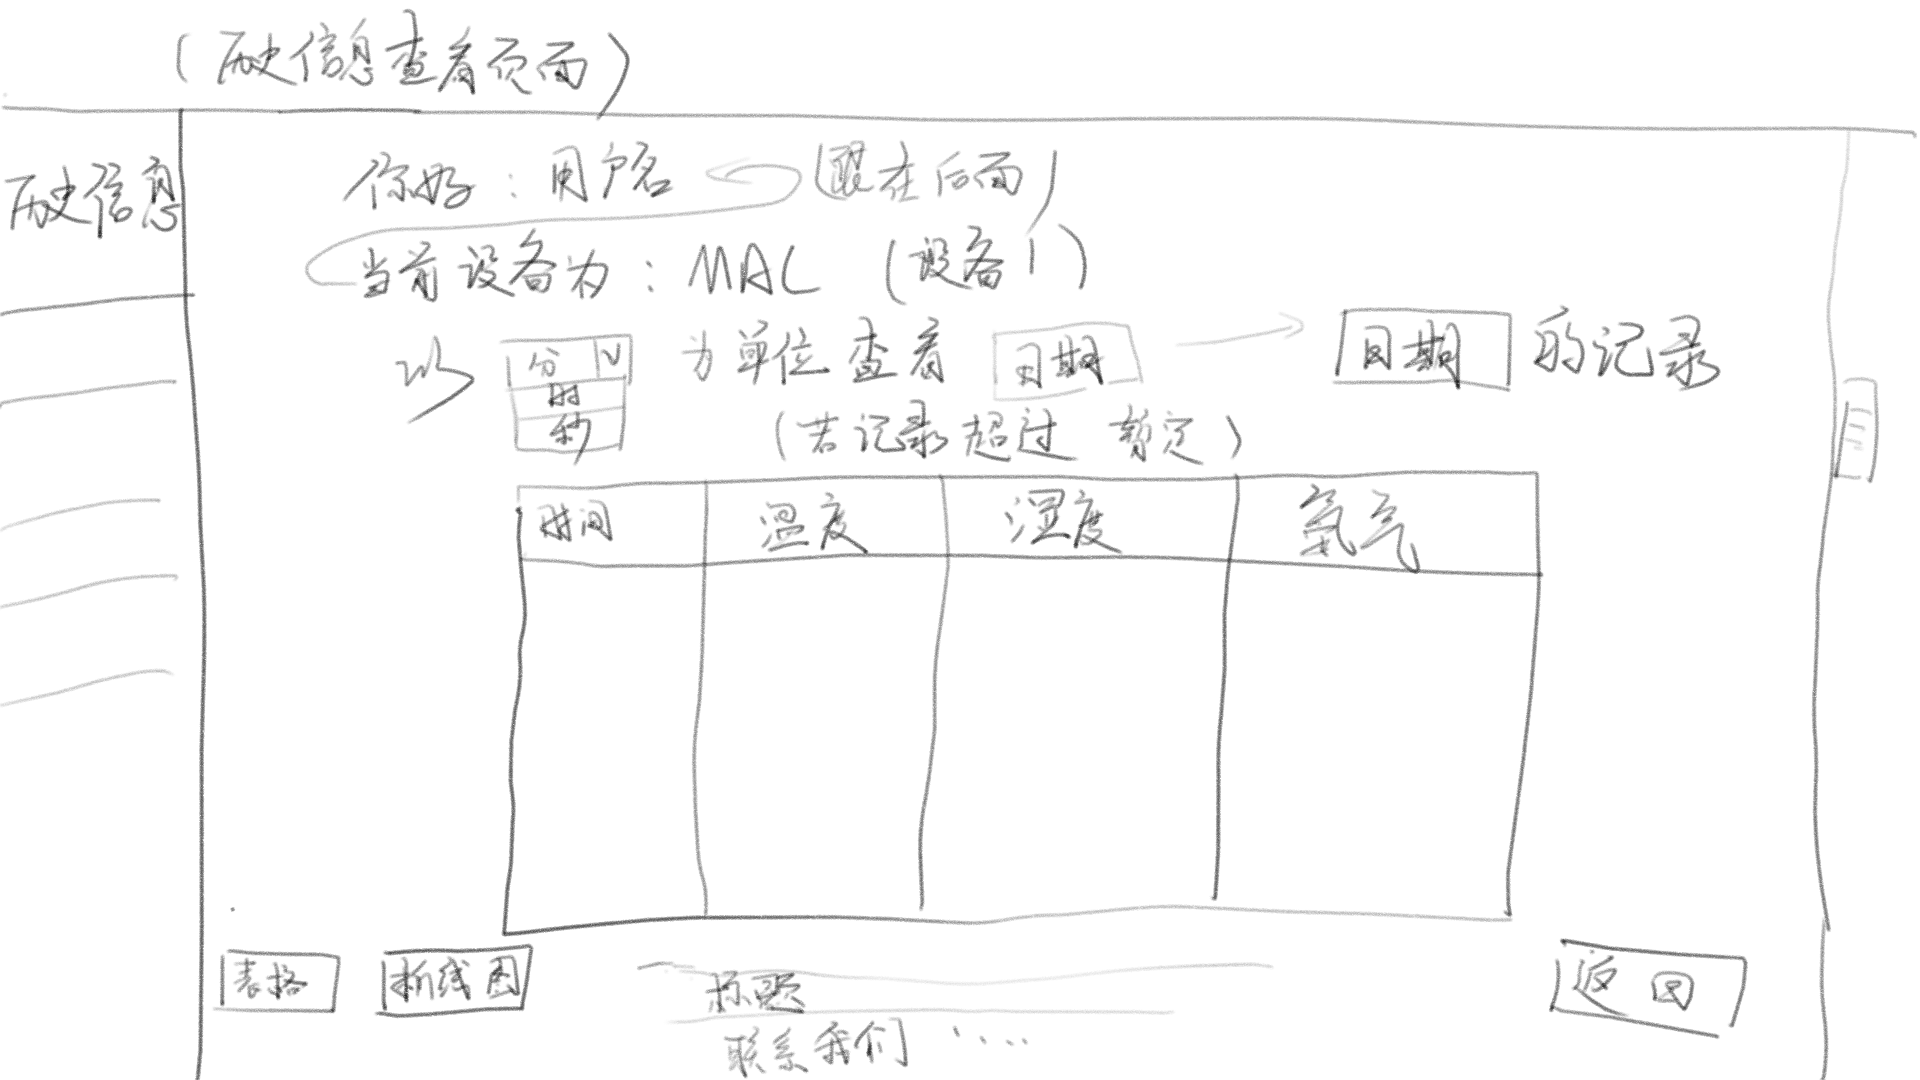 (历史信息查看页面)
历史信息
你好：用户名 (跟在后面)
当前设备为：MAC (设备1)
以 分 为单位查看 日期 → 日期 的记录
时
秒
(若记录超过 暂定)
时间 温度 湿度 氨气
表格 折线图 标题 返回
联系我们 ....